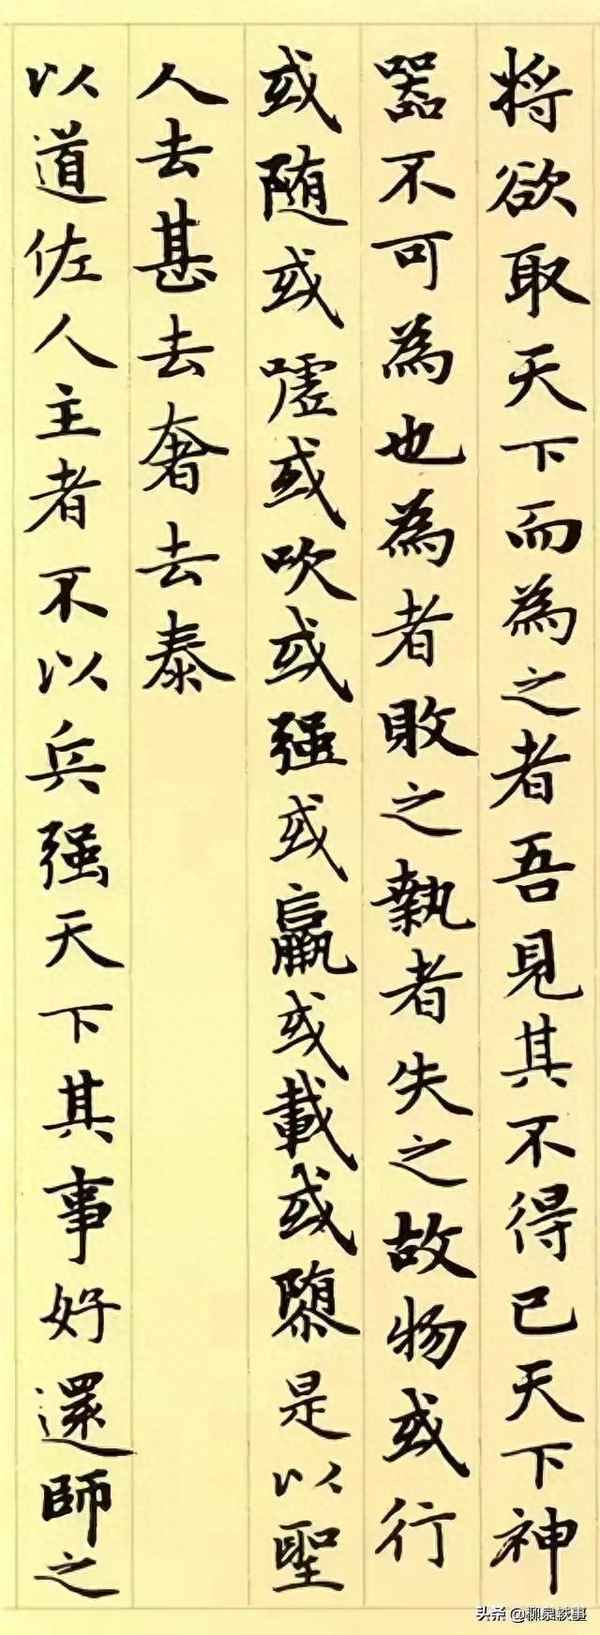 将欲取天下而為之者吾見其不得已天下神
器不可為也為者敗之執者失之故物或行
或随或嘘或吹或强或羸或載或隳是以聖
人去甚去奢去泰
以道佐人主者不以兵强天下其事好還師之
头条 @柳泉轶事